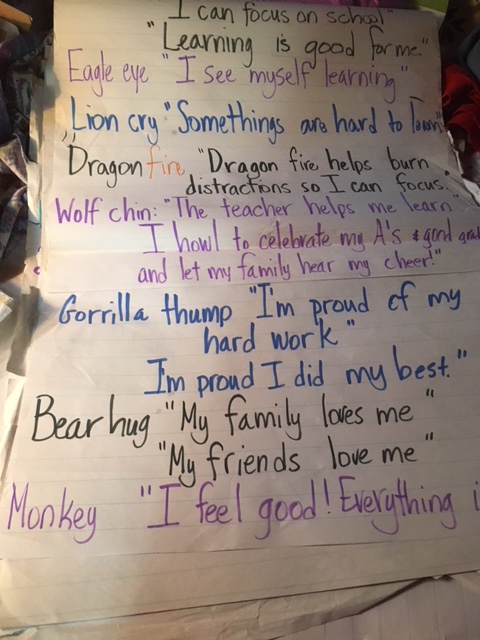 I can focus on school"
"Learning is good for me."
Eagle eye "I see myself learning"
Lion cry "Somethings are hard to learn"
Dragon fire "Dragon fire helps burn
distractions so I can focus."
Wolf chin: "The teacher helps me learn"
I howl to celebrate my A's & good
and let my family hear my cheer!"
Gorrilla thump "I'm proud of my
hard work"
I'm proud I did my best."
Bear hug "My family loves me"
"My friends love me"
Monkey "I feel good! Everything